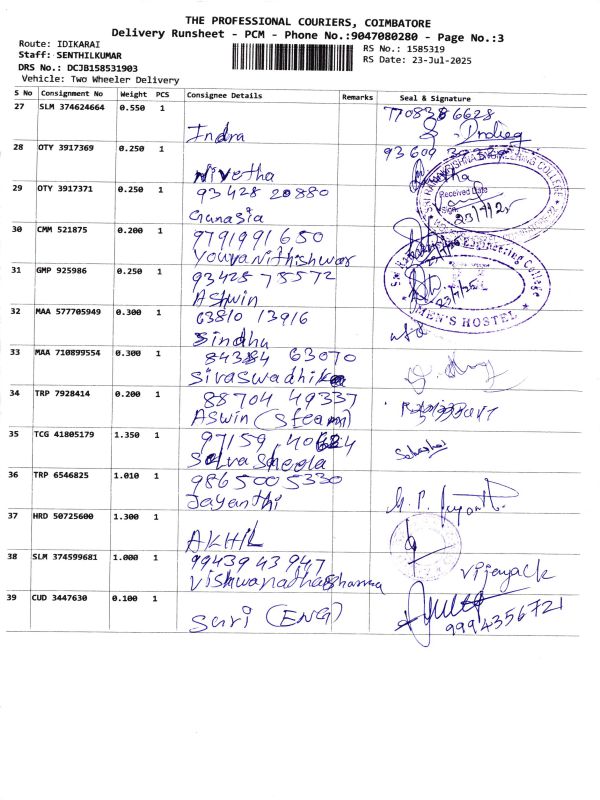 THE PROFESSIONAL COURIERS, COIMBATORE
Delivery Runsheet - PCM - Phone No.:9047080280 - Page No.:3
Route: IDIKARAI
RS No.: 1585319
Staff: SENTHILKUMAR
RS Date: 23-Jul-2025
DRS No.: DCJB158531903
Vehicle: Two Wheeler Delivery
S No Consignment No Weight PCS Consignee Details Remarks Seal & Signature
27 SLM 374624664 0.550 1 7708386628
Indra
28 OTY 3917369 0.250 1
Nivetha
29 OTY 3917371 0.250 1 93428 20880
Received Date
Sign
Ganasia
30 CMM 521875 0.200 1 9791991650
Youvanithishwar
31 GMP 925986 0.250 1 93428 78572
Engineering College
Ashwin
MEN'S HOSTEL
32 MAA 577705949 0.300 1 63810 13916
Sindhu
33 MAA 710899554 0.300 1 84384 63070
Sivaswadhika
34 TRP 7928414 0.200 1 88704 49337
Aswin (Steam)
35 TCG 41805179 1.350 1 97159
Selva Sheela
36 TRP 6546825 1.010 1 9865005330
Jayanthi
37 HRD 50725600 1.300 1
AKHIL
38 SLM 374599681 1.000 1 99439 43 947
Vijayack
Vishwanatha Sharma
39 CUD 3447630 0.100 1
9994356721
Suri (ENG)